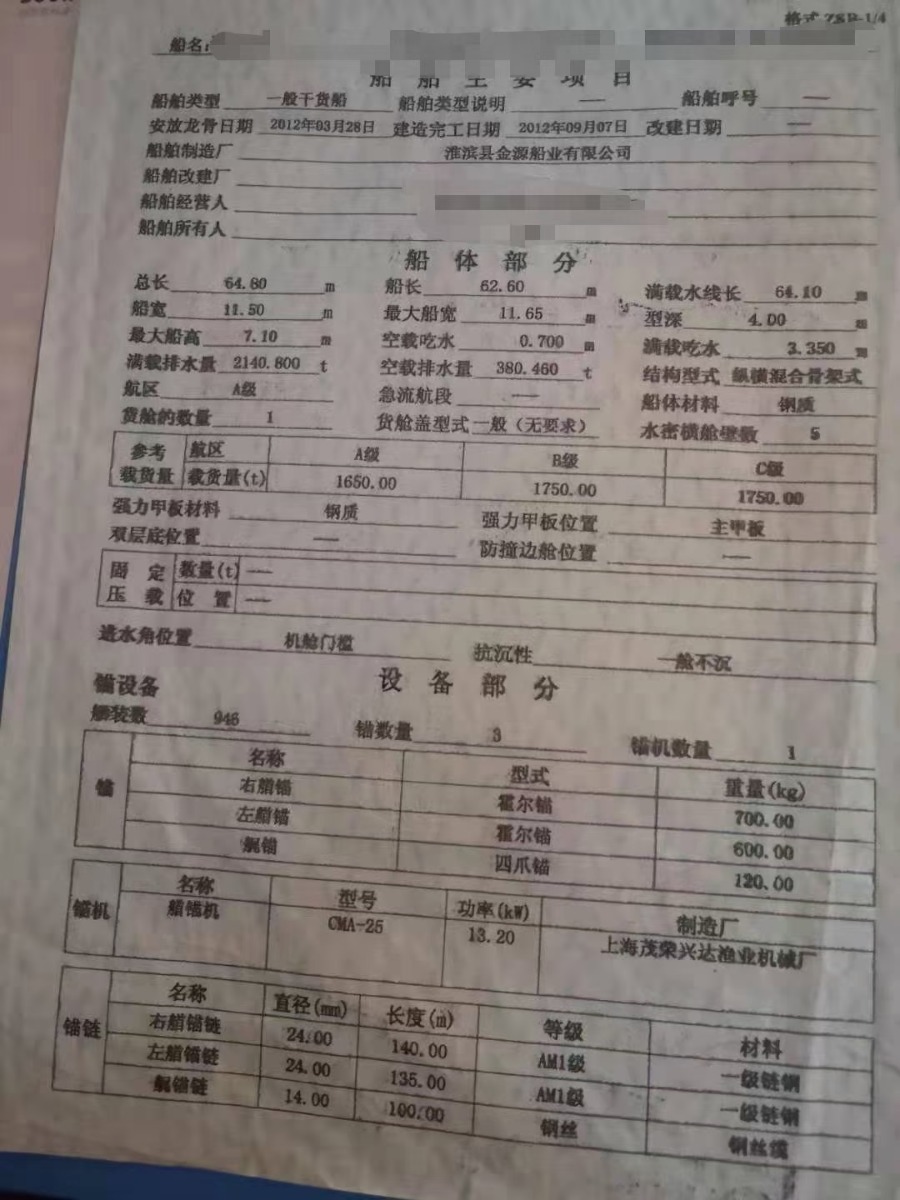 格式 ZSR-1/4
船名:
船舶主要项目
船舶类型 一般干货船 船舶类型说明 — 船舶呼号 —
安放龙骨日期 2012年03月28日 建造完工日期 2012年09月07日 改建日期 —
船舶制造厂 淮滨县金源船业有限公司
船舶改建厂
船舶经营人
船舶所有人
船体部分
总长 64.80 m 船长 62.60 m 满载水线长 64.10 m
船宽 11.50 m 最大船宽 11.65 m 型深 4.00 m
最大船高 7.10 m 空载吃水 0.700 m 满载吃水 3.350 m
满载排水量 2140.800 t 空载排水量 380.460 t 结构型式 纵横混合骨架式
航区 A级 急流航段 — 船体材料 钢质
货舱的数量 1 货舱盖型式 一般（无要求） 水密横舱壁数 5
参考载货量 航区 A级 B级 C级
载货量(t) 1650.00 1750.00 1750.00
强力甲板材料 钢质 强力甲板位置 主甲板
双层底位置 — 防撞边舱位置 —
固定压载 数量(t) —
位置 —
进水角位置 机舱门槛 抗沉性 一舱不沉
设备部分
锚设备
舾装数 946 锚数量 3 锚机数量 1
锚 名称 型式 重量(kg)
右艏锚 霍尔锚 700.00
左艏锚 霍尔锚 600.00
艉锚 四爪锚 120.00
锚机 名称 型号 功率(kW) 制造厂
艏锚机 CMA-25 13.20 上海茂荣兴达渔业机械厂
锚链 名称 直径(mm) 长度(m) 等级 材料
右艏锚链 24.00 140.00 AM1级 一级链钢
左艏锚链 24.00 135.00 AM1级 一级链钢
艉锚链 14.00 100.00 钢丝 钢丝缆